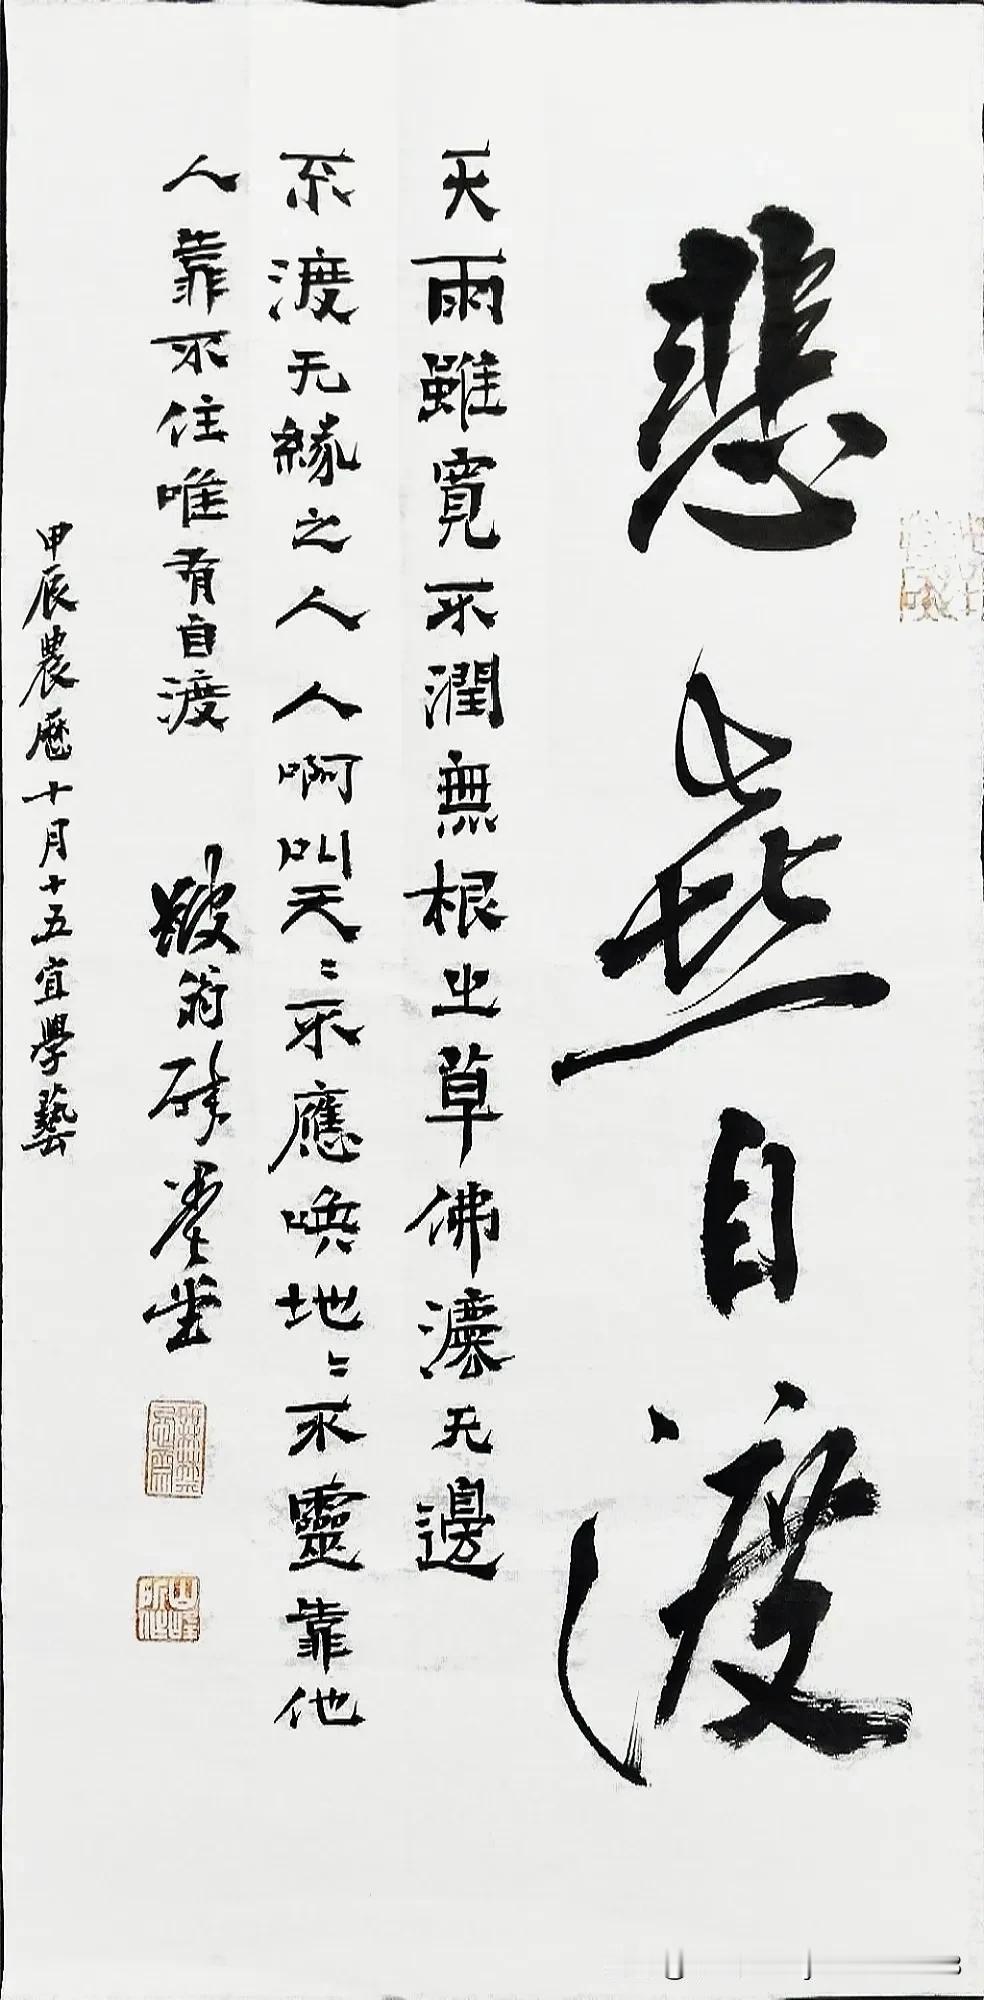 悲喜自渡
天雨雖寬不潤無根之草佛灋无邊
不渡无緣之人人啊叫天〻不應喚地〻不靈靠他
人靠不住唯有自渡 翁 堂
甲辰農曆十月十五宜學藝